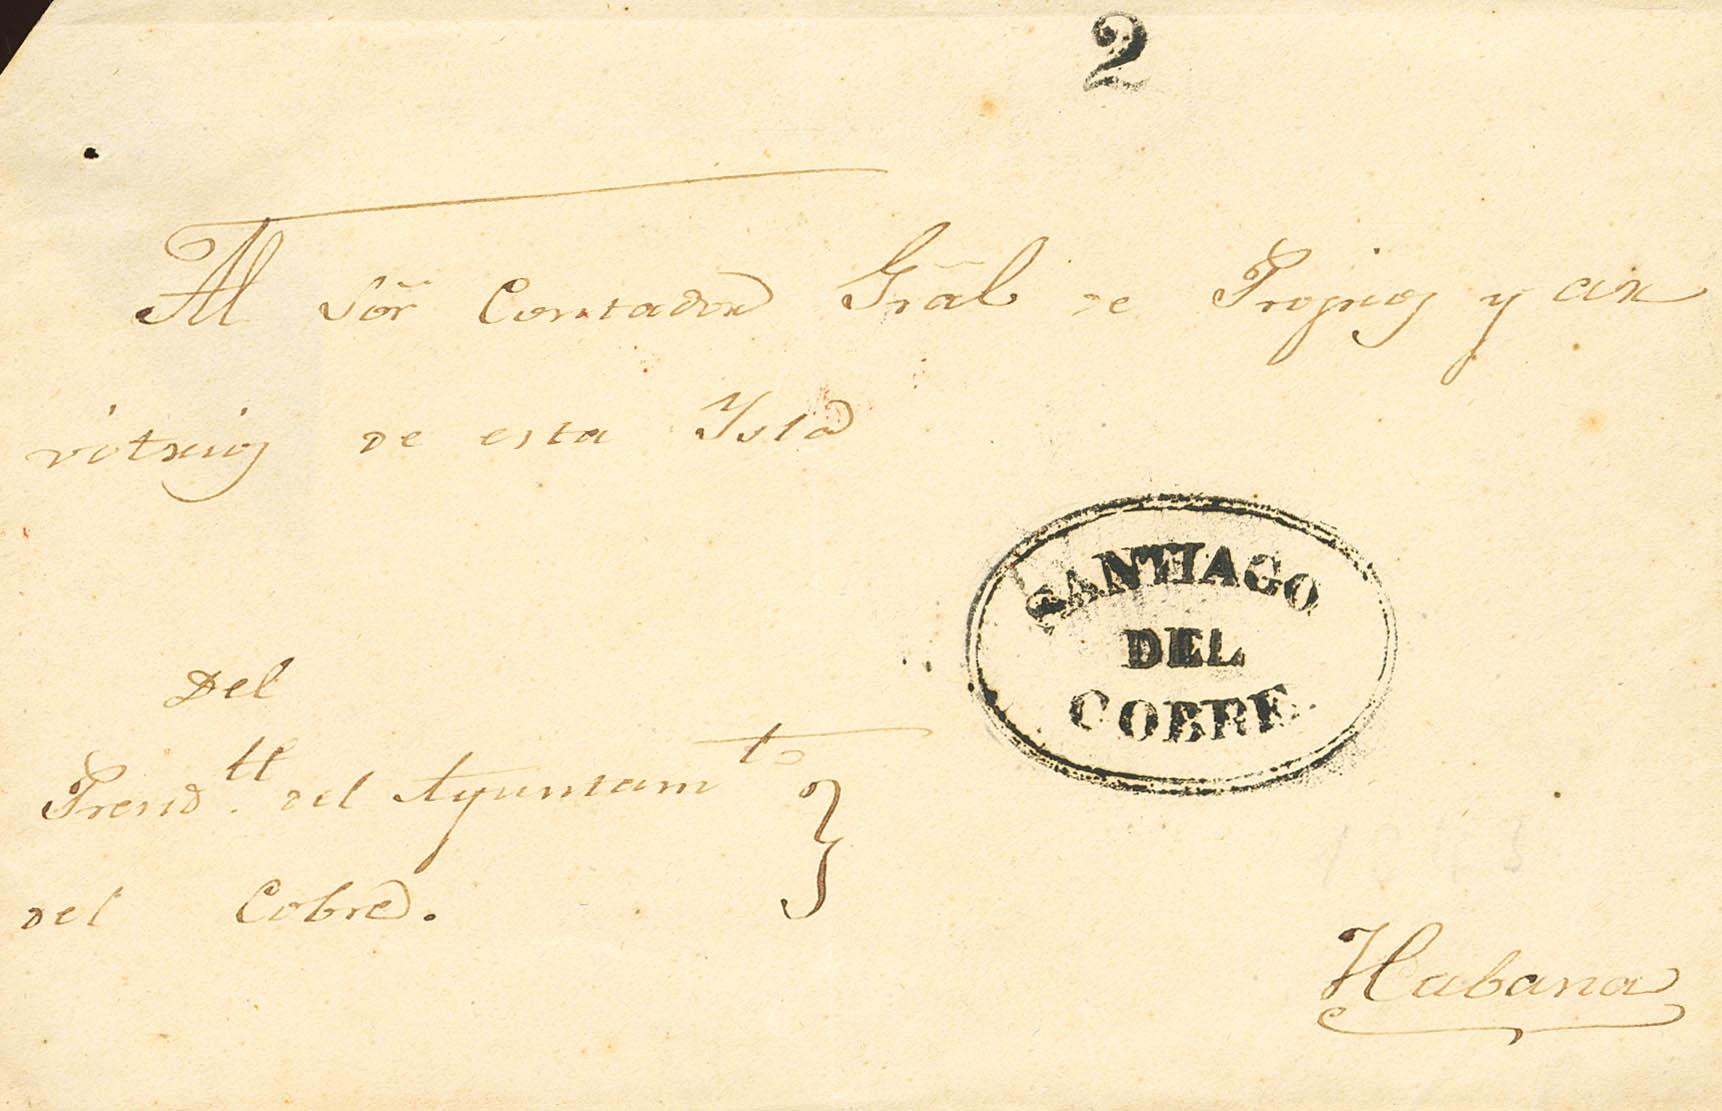 2
Al Sõr Contador Grãl de Propios y ar
vitrios de esta Ysla
SANTIAGO
DEL
COBRE
Del
Presid.te del Ayuntamto
del Cobre.
Habana